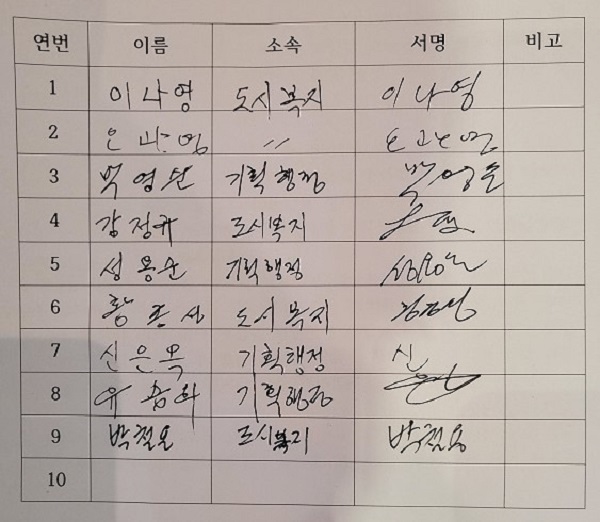 연번 이름 소속 서명 비고
1 이나영 도시복지 이나영
2 〃
3 박영순 기획행정 박영순
4 강정규 도시복지
5 성용순 기획행정 성용순
6 도시복지
7 신은옥 기획행정 신
8 유 기획행정
9 박철용 도시복지 박철용
10